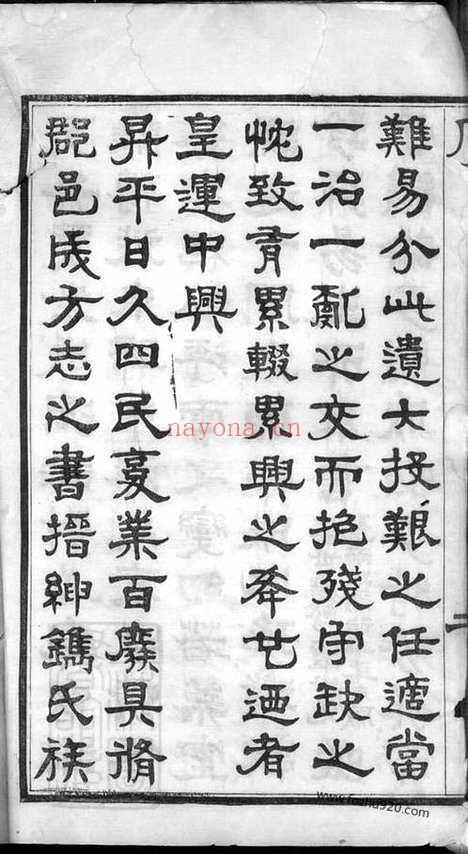 難易分此遺大投艱之任適當
一治一亂之交而抱殘守缺之
忱致有累輟累興之舉也迺者
皇運中興
昇平日久四民复業百廢具脩
郡邑成方志之書搢紳鐫氏族
nayona.cn